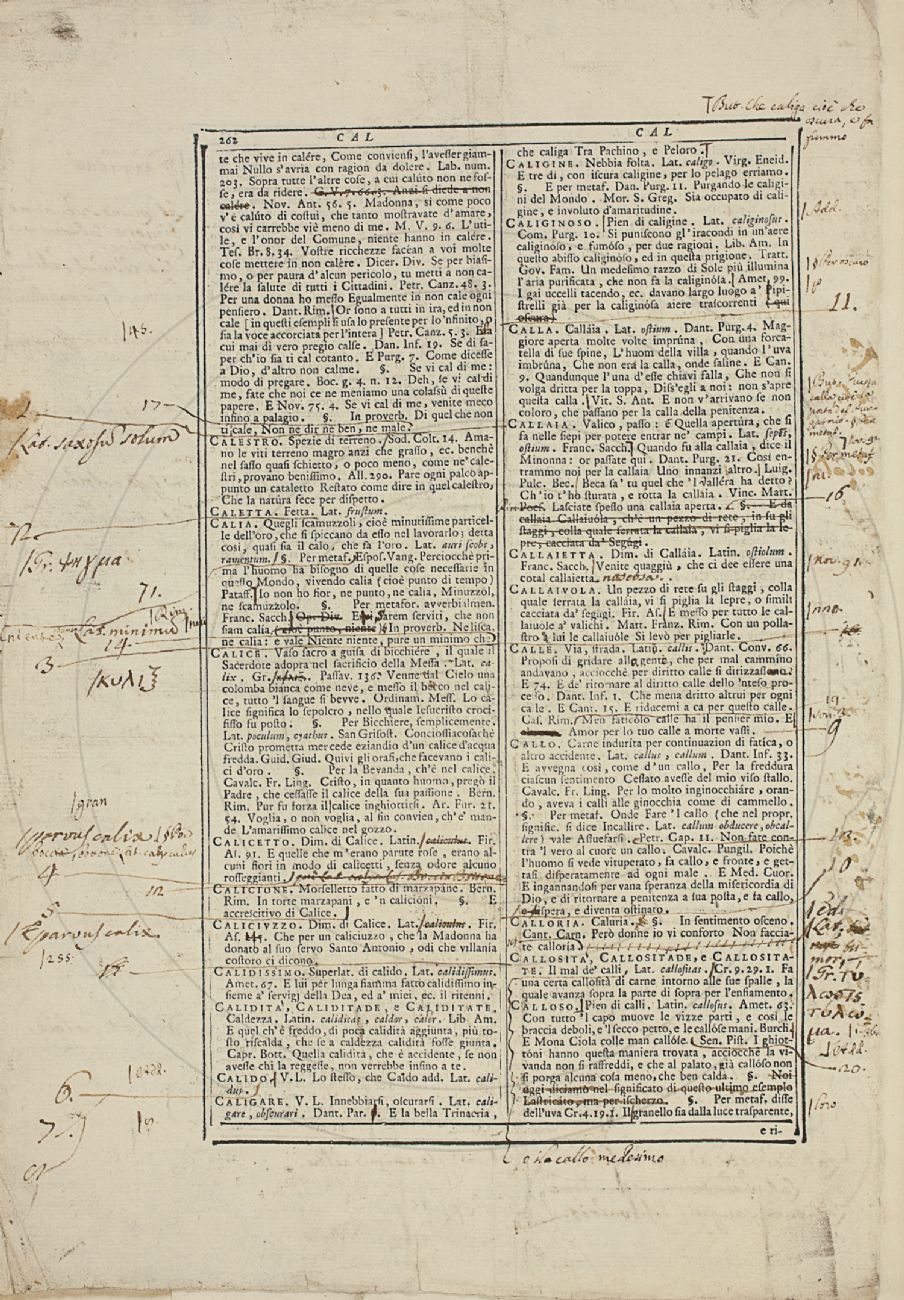 262
CAL
CAL
te che vive in calére, Come conviensi, l'avesser giam-
mai Nullo s'avria con ragion da dolere. Lab. num.
203. Sopra tutte l'altre cose, a cui calúto non ne fos-
se, era da ridere. G. V. 7. 66. 3. Anzi si diede a non
calére. Nov. Ant. 56. 5. Madonna, si come poco
v'è calúto di costui, che tanto mostravate d'amare,
così vi carrebbe viè meno di me. M. V. 9. 6. L'uti-
le, e l'onor del Comune, niente hanno in calére.
Tes. Br. 8. 34. Vostre ricchezze facéan a voi molte
cose mettere in non calére. Dicer. Div. Se per biasi-
mo, o per paura d'alcun pericolo, tu metti a non ca-
lére la salute di tutti i Cittadini. Petr. Canz. 48. 3.
Per una donna ho messo Egualmente in non cale ogni
pensiero. Dant. Rim. Or sono a tutti in ira, ed in non
cale [in questi esempli si usa lo presente per lo 'nfinito, o
sia la voce accorciata per l'intera] Petr. Canz. 5. 3.
cui mai di vero pregio calse. Dan. Inf. 19. Se di sa-
per ch'io sia ti cal cotanto. E Purg. 7. Come dicesse
a Dio, d'altro non calme. §. Se vi cal di me:
modo di pregare. Boc. g. 4. n. 12. Deh, se vi cal di
me, fate che noi ce ne meniamo una colassù di queste
papere. E Nov. 75. 4. Se vi cal di me, venite meco
insino a palagio. §. In proverb. Di quel che non
ti cale, Non ne dir ne ben, ne male.
CALESTRO. Spezie di terreno. Sod. Colt. 14. Ama-
no le viti terreno magro anzi che grasso, ec. benchè
nel sasso quasi schietto, o poco meno, come ne' cale-
stri, provano benissimo. All. 290. Pare ogni palco ap-
punto un cataletto Restato come dire in quel calestro,
Che la natúra fece per dispetto.
CALETTA. Fetta. Lat. frustum.
CALIA. Quegli scamuzzoli, cioè minutissime particel-
le dell'oro, che si spiccano da esso nel lavorarlo; detta
così, quasi sia il calo, che fa l'oro. Lat. auri scobs,
ramentum. §. Per metaf. Espos. Vang. Perciocchè pri-
ma l'huomo ha bisogno di quelle cose necessarie in
questo Mondo, vivendo calia (cioè punto di tempo)
Pataff. Io non ho fior, ne punto, ne calia, Minuzzol,
ne scamúzzolo. §. Per metafor. avverbialmen.
Franc. Sacch. Op. Div. Farem serviti, che non
siam calia (cioè punto, niente) In proverb. Ne lisca,
ne calia: e vale Niente niente, pure un minimo che
CALICE. Vaso sacro a guisa di bicchiére, il quale il
Sacerdote adopra nel sacrificio della Messa. Lat. ca-
lix. Gr. Passav. 136. Venne dal Cielo una
colomba bianca come neve, e messo il becco nel cali-
ce, tutto 'l sangue si bevve. Ordinam. Mess. Lo cá-
lice significa lo sepolcro, nello quale Iesucristo croci-
fisso fu posto. §. Per Bicchiere, semplicemente.
Lat. poculum, cyathus. San Grisost. Conciossiacosachè
Cristo prometta mercede eziandio d'un calice d'acqua
fredda. Guid. Giud. Quivi gli orafi, che facevano i cali-
ci d'oro. §. Per la Bevanda, ch'è nel calice.
Cavalc. Fr. Ling. Cristo, in quanto huomo, pregò il
Padre, che cessasse il calice della sua passione. Bern.
Rim. Pur fu forza il calice inghiottirsi. Ar. Fur. 21.
54. Voglia, o non voglia, al fin convien, ch'e' man-
de L'amarissimo calice nel gozzo.
CALICETTO. Dim. di Calice. Latin. caliculus. Fir.
As. 91. E quelle che m'erano parute rose, erano al-
cuni fiori in modo di calicetti, senza odore alcuno
rosseggianti.
CALICIONE. Morselletto fatto di marzapane. Bern.
Rim. In torte marzapani, e 'n calicioni. §. E
accrescitivo di Calice.
CALICIVZZO. Dim. di Calice. Lat. caliculus. Fir.
As. Che per un caliciuzzo, che la Madonna ha
donato al suo servo Santo Antonio, odi che villania
costoro ci dicono.
CALIDISSIMO. Superlat. di calido. Lat. calidissimus.
Amet. 67. E lui per lunga fiamma fatto calidissimo in-
sieme a' servigj della Dea, ed a' miei, ec. il ritenni.
CALIDITÀ, CALIDITADE, e CALIDITATE.
Caldezza. Latin. caliditas, caldor, calor. Lib. Am.
E quel ch'è freddo, di poca calidità aggiunta, più to-
sto riscalda, che se a caldezza calidità fosse giunta.
Capr. Bott. Quella calidità, che è accidente, se non
avesse chi la reggesse, non verrebbe insino a te.
CALIDO. V. L. Lo stesso, che Caldo add. Lat. cali-
dus.
CALIGARE. V. L. Innebbiarsi, oscurarsi. Lat. cali-
gare, obscurari. Dant. Par. E la bella Trinacria,
che caliga Tra Pachino, e Peloro.
CALIGINE. Nebbia folta. Lat. caligo. Virg. Eneid.
E tre dì, con iscura caligine, per lo pelago erriamo.
§. E per metaf. Dan. Purg. 11. Purgando le caligi-
ni del Mondo. Mor. S. Greg. Sia occupato di cali-
gine, e involuto d'amaritudine.
CALIGINOSO. Pien di caligine. Lat. caliginosus.
Com. Purg. 10. Si punisconо gl'iracondi in un'aere
caliginóso, e fumóso, per due ragioni. Lib. Am. In
questo abisso caliginóso, ed in questa prigione. Tratt.
Gov. Fam. Un medesimo razzo di Sole più illumina
l'aria purificata, che non fa la caliginósa. Amet. 99.
I gai uccelli tacendo, ec. davano largo luogo a' Pipi-
strelli già per la caliginósa aiere trascorrenti (qui
oscura)
CALLA. Calláia. Lat. ostium. Dant. Purg. 4. Mag-
giore aperta molte volte imprúna, Con una forca-
tella di sue spine, L'huom della villa, quando l'uva
imbrúna, Che non era la calla, onde saline. E Can.
9. Quandunque l'una d'esse chiavi falla, Che non si
volga dritta per la toppa, Diss'egli a noi: non s'apre
questa calla. Vit. S. Ant. E non v'arrivano se non
coloro, che passano per la calla della penitenza.
CALLAIA. Valico, passo: è Quella apertúra, che si
fa nelle siepi per potere entrar ne' campi. Lat. septi,
ostium. Franc. Sacch. Quando fu alla callaia, dice il
Minonna: or passate qui. Dant. Purg. 21. Così en-
trammo noi per la callaia Uno innanzi altro. Luig.
Pulc. Bec. Beca sa' tu quel che 'l Valléra ha detto?
Ch'io t'hò sturata, e rotta la calláia. Vinc. Mart.
Lasciate spesso una callaia aperta. §. E da
callaia Callaiuóla, ch'è un pezzo di rete, in su gli
staggi, colla quale serrata la callaia, vi si piglia la le-
pre, cacciata da' Segugi.
CALLAIETTA. Dim. di Calláia. Latin. ostiolum.
Franc. Sacch. Venite quaggiù, che ci dee essere una
cotal callaietta nascosa.
CALLAIVOLA. Un pezzo di rete su gli staggi, colla
quale serrata la calláia, vi si piglia la lepre, o simili
cacciata da' segúgi. Fir. As. E messo per tutto le cal-
laiuóle a' valichi. Matt. Franz. Rim. Con un polla-
stro a lui le callaiuóle Si levò per pigliarle.
CALLE. Via, strada. Latin. callis. Dant. Conv. 66.
Proposi di gridare alla gente, che per mal cammino
andavano, acciocchè per diritto calle si dirizzassono.
E 74. E de' ritornare al diritto calle dello 'nteso pro-
cesso. Dant. Inf. 1. Che mena dritto altrui per ogni
calle. E Cant. 15. E riducemi a ca per questo calle.
Cas. Rim. Men faticóso calle ha il pensier mio. E
Amor per lo tuo calle a morte vassi.
CALLO. Carne indurita per continuazion di fatica, o
altro accidente. Lat. callus, callum. Dant. Inf. 33.
E avvegna così, come d'un callo, Per la freddura
ciascun sentimento Cessato avesse del mio viso stallo.
Cavalc. Fr. Ling. Per lo molto inginocchiáre, oran-
do, aveva i calli alle ginocchia come di cammello.
§. Per metaf. Onde Fare 'l callo (che nel propr.
signific. si dice Incallire. Lat. callum obducere, obcal-
lere) vale Assuefarsi. Petr. Son. 11. Non fate con-
tra 'l vero al cuore un callo. Cavalc. Pungil. Poichè
l'huomo si vede vituperato, fa callo, e fronte, e get-
tasi disperatamente ad ogni male. E Med. Cuor.
E ingannandosi per vana speranza della misericordia di
Dio, e di ritornare a penitenza a sua posta, e fa callo,
o ispera, e diventa ostinato.
CALLORIA. Caluria. §. In sentimento osceno.
Cant. Carn. Però donne io vi conforto Non faccia-
te calloria
CALLOSITÀ, CALLOSITADE, e CALLOSITA-
TE. Il mal de' calli, Lat. callositas. Cr. 9. 29. 1. Fa
una certa callosità di carne intorno alle sue spalle, la
quale avanza sopra la parte di sopra per l'ensiamento.
CALLOSO. Pien di calli. Latin. callosus. Amet. 63.
Con tutto 'l capo muove le vizze parti, e così le
braccia deboli, e 'l secco petto, e le callóse mani. Burch.
E Mona Ciola colle man callóse. Sen. Pist. I ghiot-
tóni hanno questa maniera trovata, acciocchè la vi-
vanda non si raffreddi, e che al palato, già callóso non
si porga alcuna cosa meno, che ben calda. §. Noi
oggi diciamo nel significato di questo ultimo esemplo
Lastricato, ma per ischerzo. §. Per metaf. disse
dell'uva Cr. 4. 19. 1. Il granello sia dalla luce trasparente,
e ri-
145.
17
Lat. saxosum solum
72
Gr. ψηγμα
71.
Lat. minimum
14
3
κυλιξ
gran
parvus calix
4
12
5
parvus calix
255
15
Add.
6.
7.
But. che caliga cioè che
oscura, e fa
fummo
Add.
11.
16
nov. 91
9
10
Gr. τυ
λωσις
Add.
20.
e ha callo medesimo